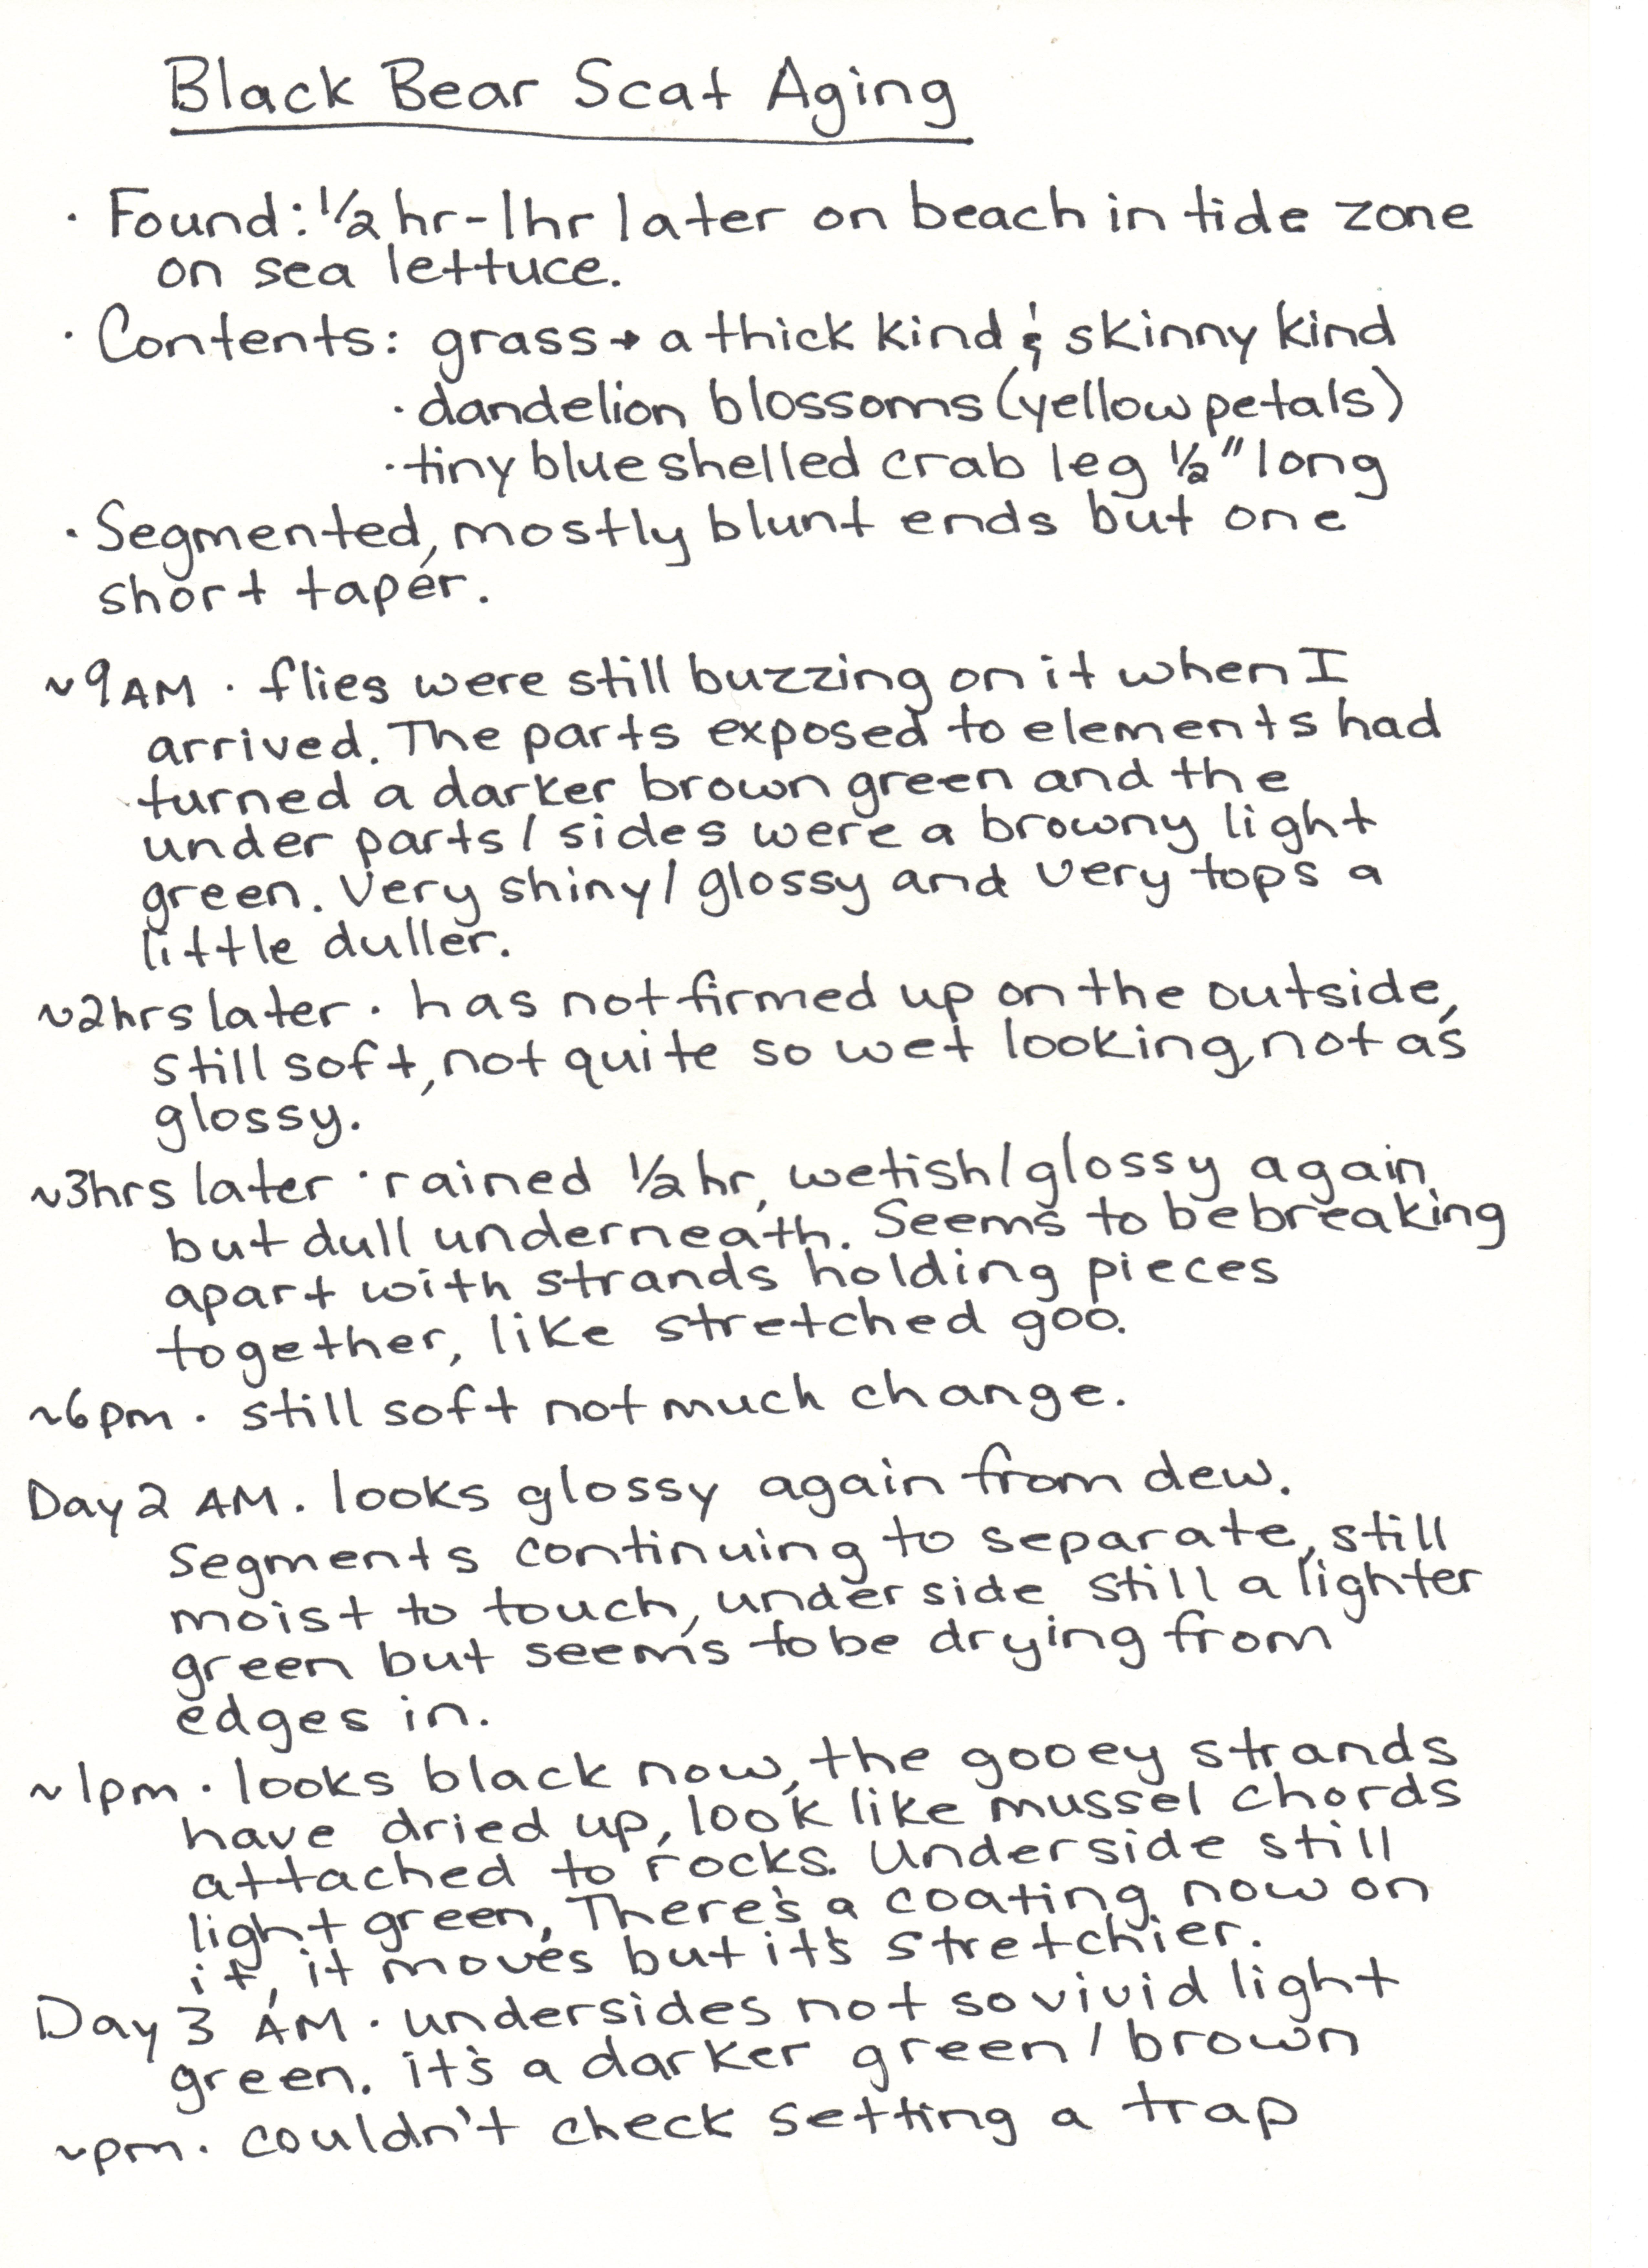 Black Bear Scat Aging
· Found: ½ hr-1hr later on beach in tide zone
on sea lettuce.
· Contents: grass → a thick kind & skinny kind
· dandelion blossoms (yellow petals)
· tiny blue shelled crab leg ½" long
· Segmented, mostly blunt ends but one
short taper.
~9AM · flies were still buzzing on it when I
arrived. The parts exposed to elements had
turned a darker brown green and the
under parts/sides were a browny light
green. Very shiny/glossy and very tops a
little duller.
~2hrs later · has not firmed up on the outside,
still soft, not quite so wet looking, not as
glossy.
~3hrs later · rained ½ hr, wetish/glossy again
but dull underneath. Seems to be breaking
apart with strands holding pieces
together, like stretched goo.
~6pm · still soft not much change.
Day 2 AM · looks glossy again from dew.
Segments continuing to separate, still
moist to touch, underside still a lighter
green but seems to be drying from
edges in.
~1pm · looks black now, the gooey strands
have dried up, look like mussel chords
attached to rocks. Underside still
light green, There's a coating now on
it, it moves but it's stretchier.
Day 3 AM · undersides not so vivid light
green. it's a darker green/brown
~pm · couldn't check setting a trap